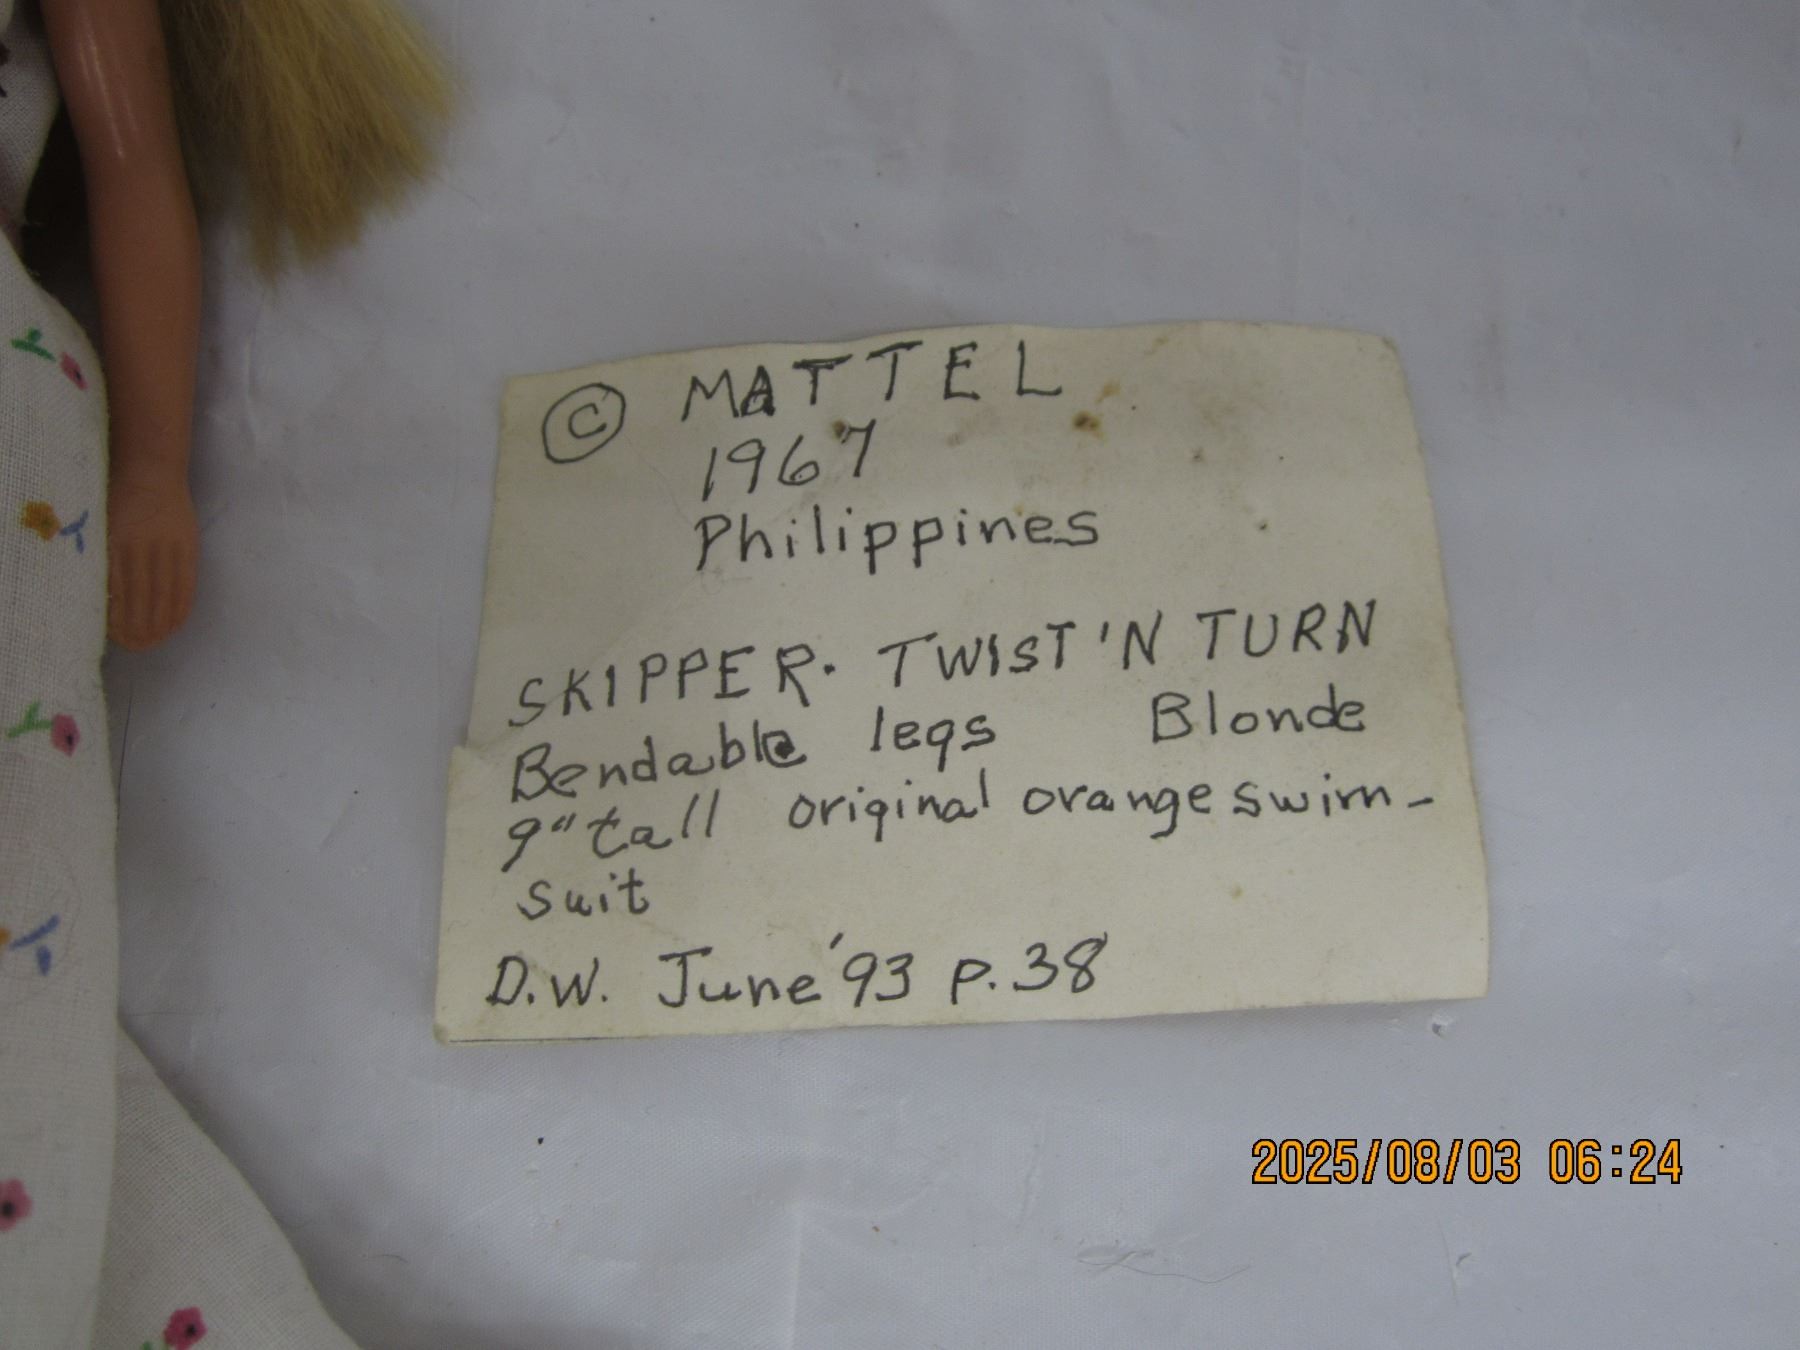 © MATTEL
1967
Philippines
SKIPPER. TWIST 'N TURN
Bendable legs Blonde
9" tall original orange swim-
suit
D.W. June '93 p.38
2025/08/03 06:24